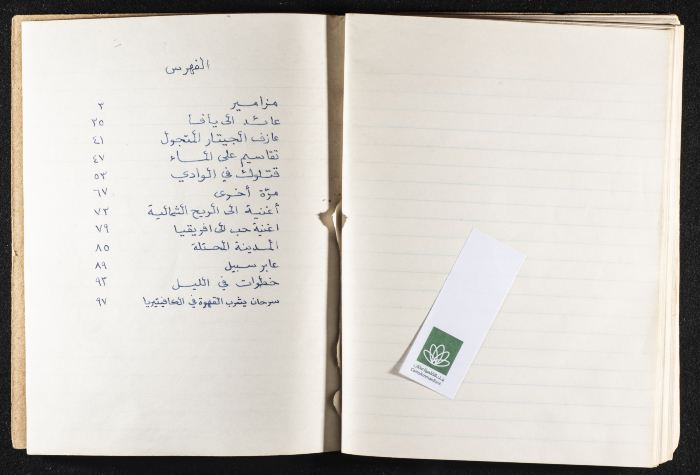 الفهرس
مزامير ٣
عائد الى يافا ٣٥
عازف الجيتار المتجول ٤١
تقاسيم على الماء ٤٧
قتلوك في الوادي ٥٣
مرّة أخرى ٦٧
أغنية الى الريح الشمالية ٧٣
اغنية حب الى افريقيا ٧٩
المدينة المحتلة ٨٥
عابر سبيل ٨٩
خطوات في الليل ٩٣
سرحان يشرب القهوة في الكافيتيريا ٩٧